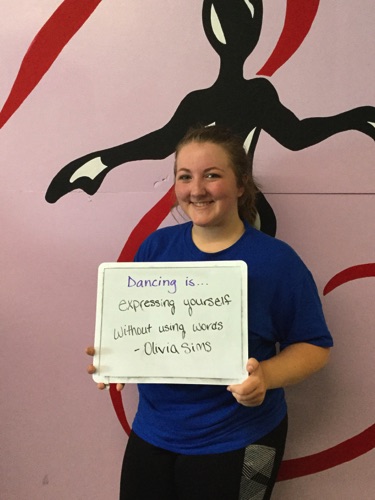 Dancing is...
expressing yourself
without using words
- Olivia Sims